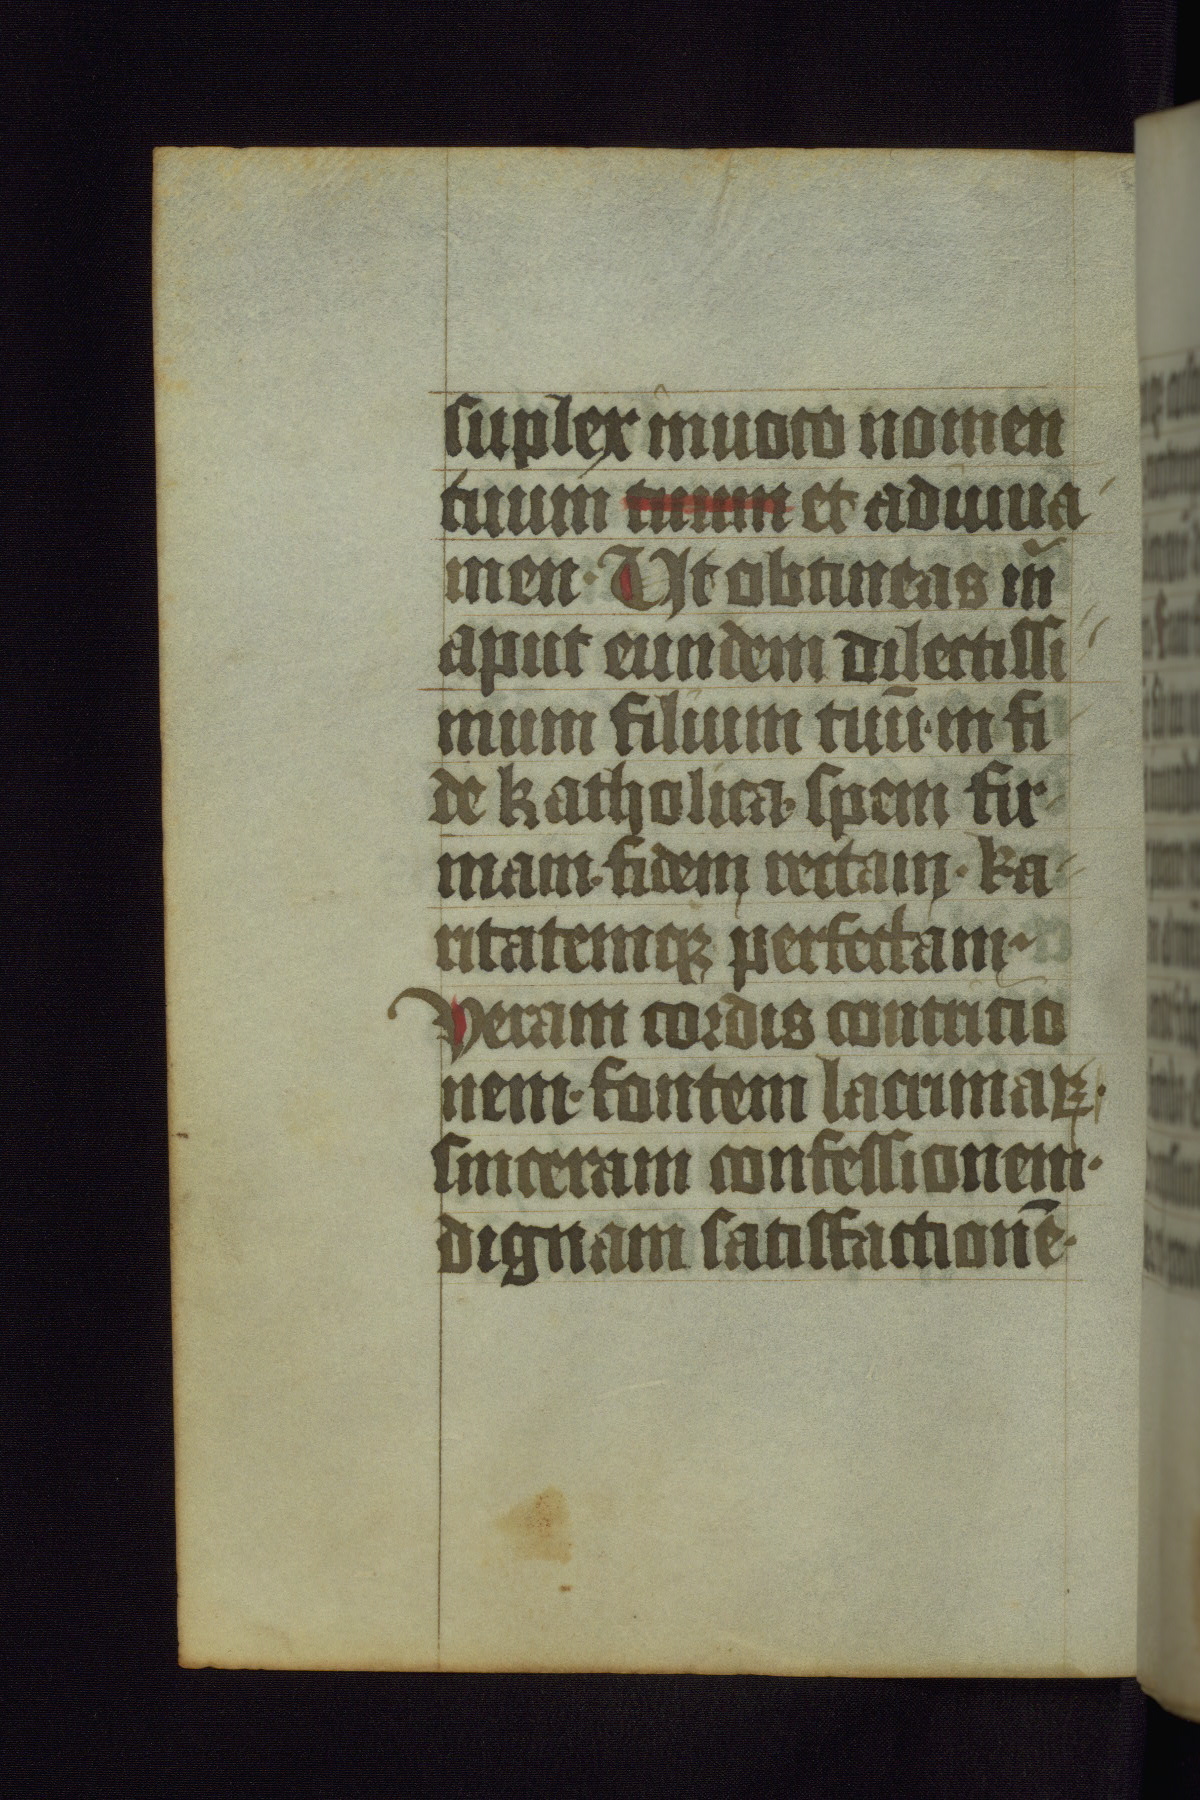 suplex inuoco nomen
tuum tuum et adiuua
men. Ut obtineas m̄
aput eundem dilectissi
mum filium tuū. in fi
de katholica. spem fir
mam. fidem rectam. ka
ritatemqꝫ perfectam.
Veram cordis contricio
nem. fontem lacrimaꝝ.
sinceram confessionem.
dignam satisfactionē.